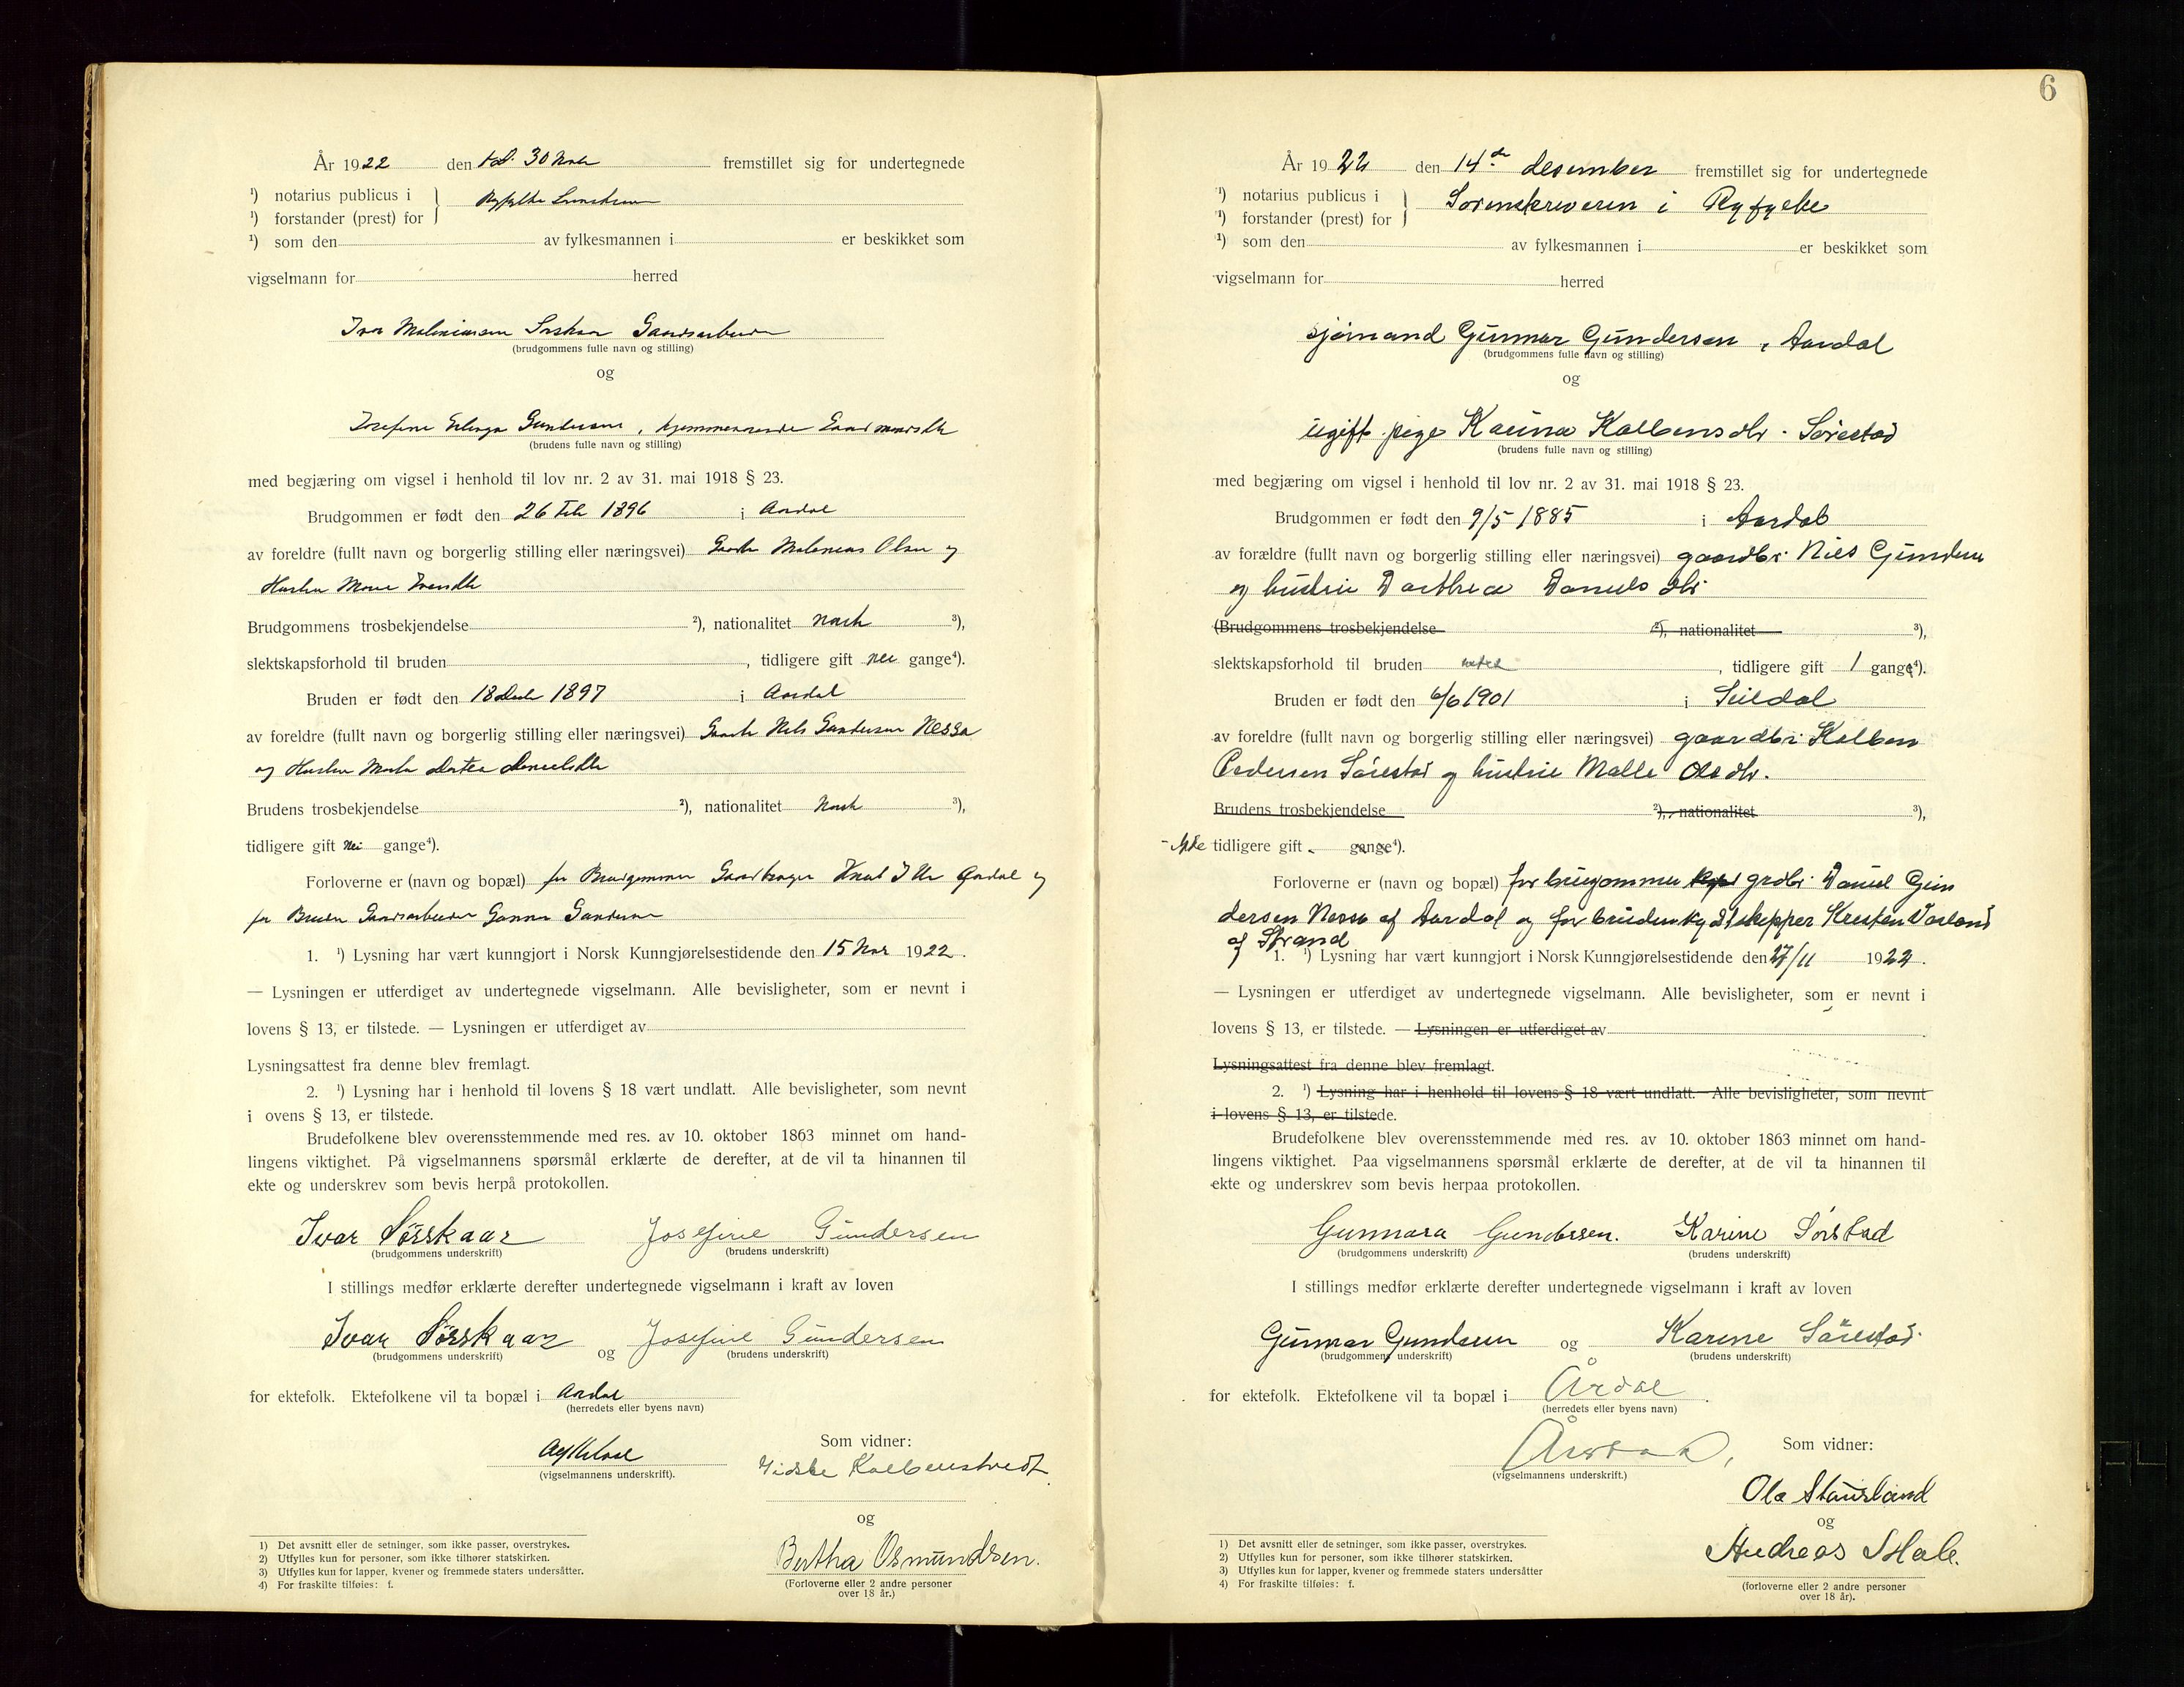 År 1922 den 30 Nov fremstillet sig for undertegnede
¹) notarius publicus i
¹) forstander (prest) for
¹) som den av fylkesmannen i er beskikket som
vigselmann for herred
Ivar Gaardsarbeider
(brudgommens fulle navn og stilling)
og
Josefine Gundersen, hjemmeværende
(brudens fulle navn og stilling)
med begjæring om vigsel i henhold til lov nr. 2 av 31. mai 1918 § 23.
Brudgommen er født den 26 Feb 1896 i Aardal
av foreldre (fullt navn og borgerlig stilling eller næringsvei) Olsen og
Hustru
Brudgommens trosbekjendelse ²), nationalitet norsk ³),
slektskapsforhold til bruden , tidligere gift nei gange⁴).
Bruden er født den 18 1897 i Aardal
av foreldre (fullt navn og borgerlig stilling eller næringsvei) Nils Gundersen Nessa
og Hustru
Brudens trosbekjendelse ²), nationalitet Norsk ³),
tidligere gift nei gange⁴).
Forloverne er (navn og bopæl) for Brudgommen Gaardbruger Aardal og
for Bruden Gaardsarbeider Gunnar Gundersen
1. ¹) Lysning har vært kunngjort i Norsk Kunngjørelsestidende den 15 Nov 1922.
— Lysningen er utferdiget av undertegnede vigselmann. Alle bevisligheter, som er nevnt i
lovens § 13, er tilstede. — Lysningen er utferdiget av
Lysningsattest fra denne blev fremlagt.
2. ¹) Lysning har i henhold til lovens § 18 vært undlatt. Alle bevisligheter, som nevnt
i ovens § 13, er tilstede.
Brudefolkene blev overensstemmende med res. av 10. oktober 1863 minnet om hand-
lingens viktighet. På vigselmannens spørsmål erklærte de derefter, at de vil ta hinannen til
ekte og underskrev som bevis herpå protokollen.
Ivar Sörskaar Josefine Gundersen
(brudgommens underskrift) (brudens underskrift)
I stillings medfør erklærte derefter undertegnede vigselmann i kraft av loven
Ivar Sörskaar og Josefine Gundersen
(brudgommens underskrift) (brudens underskrift)
for ektefolk. Ektefolkene vil ta bopæl i Aardal
(herredets eller byens navn)
Som vidner:
(vigselmannens underskrift).
og
Bertha Osmundsen.
(Forloverne eller 2 andre personer
over 18 år.)
1) Det avsnitt eller de setninger, som ikke passer, overstrykes.
2) Utfylles kun for personer, som ikke tilhører statskirken.
3) Utfylles kun for lapper, kvener og fremmede staters undersåtter.
4) For fraskilte tilføies: f.
6
År 1922 den 14de desember fremstillet sig for undertegnede
¹) notarius publicus i
¹) forstander (prest) for
Sorenskriveren i Ryfylke
¹) som den av fylkesmannen i er beskikket som
vigselmann for herred
sjømand Gunnar Gundersen, Aardal
(brudgommens fulle navn og stilling)
og
ugift pige Karina Kolbensdtr. Sørestad
(brudens fulle navn og stilling)
med begjæring om vigsel i henhold til lov nr. 2 av 31. mai 1918 § 23.
Brudgommen er født den 9/5 1885 i Aardal
av forældre (fullt navn og borgerlig stilling eller næringsvei) gaardbr. Nils Gundersen
og hustru Dorthea Daniels dtr.
(Brudgommens trosbekjendelse ²), nationalitet ³),
slektskapsforhold til bruden , tidligere gift 1 gange⁴).
Bruden er født den 6/6 1901 i Suldal
av foreldre (fullt navn og borgerlig stilling eller næringsvei) gaardbr. Kolben
Pedersen Sørestad og hustru Malle Olsdtr.
Brudens trosbekjendelse ²), nationalitet ³),
- ikke tidligere gift gange⁴).
Forloverne er (navn og bopæl) for brugommen grdbr. Daniel Gun
dersen Nessa af Aardal og for bruden Kresten
af Strand
1. ¹) Lysning har vært kunngjort i Norsk Kunngjørelsestidende den 27/11 1922.
— Lysningen er utferdiget av undertegnede vigselmann. Alle bevisligheter, som er nevnt i
lovens § 13, er tilstede. — Lysningen er utferdiget av
Lysningsattest fra denne blev fremlagt.
2. ¹) Lysning har i henhold til lovens § 18 vært undlatt. Alle bevisligheter, som nevnt
i lovens § 13, er tilstede.
Brudefolkene blev overensstemmende med res. av 10. oktober 1863 minnet om hand-
lingens viktighet. Paa vigselmannens spørsmål erklærte de derefter, at de vil ta hinannen til
ekte og underskrev som bevis herpaa protokollen.
Gunnara Gundersen. Karine Sörstad
(brudgommens underskrift) (brudens underskrift)
I stillings medfør erklærte derefter undertegnede vigselmann i kraft av loven
Gunnar Gundersen og Karine Sørestad.
(brudgommens underskrift) (brudens underskrift)
for ektefolk. Ektefolkene vil ta bopæl i Årdal.
(herredets eller byens navn)
Som vidner:
(vigselmannens underskrift.)
Ola Staurland
og
Andreas Hale.
(forloverne eller 2 andre personer
over 18 år).
1) Det avsnitt eller de setninger, som ikke passer, overstrykes.
2) Utfylles kun for personer, som ikke tilhører statskirken.
3) Utfylles kun for lapper, kvener og fremmede staters undersåtter
4) For fraskilte tilføies: f.